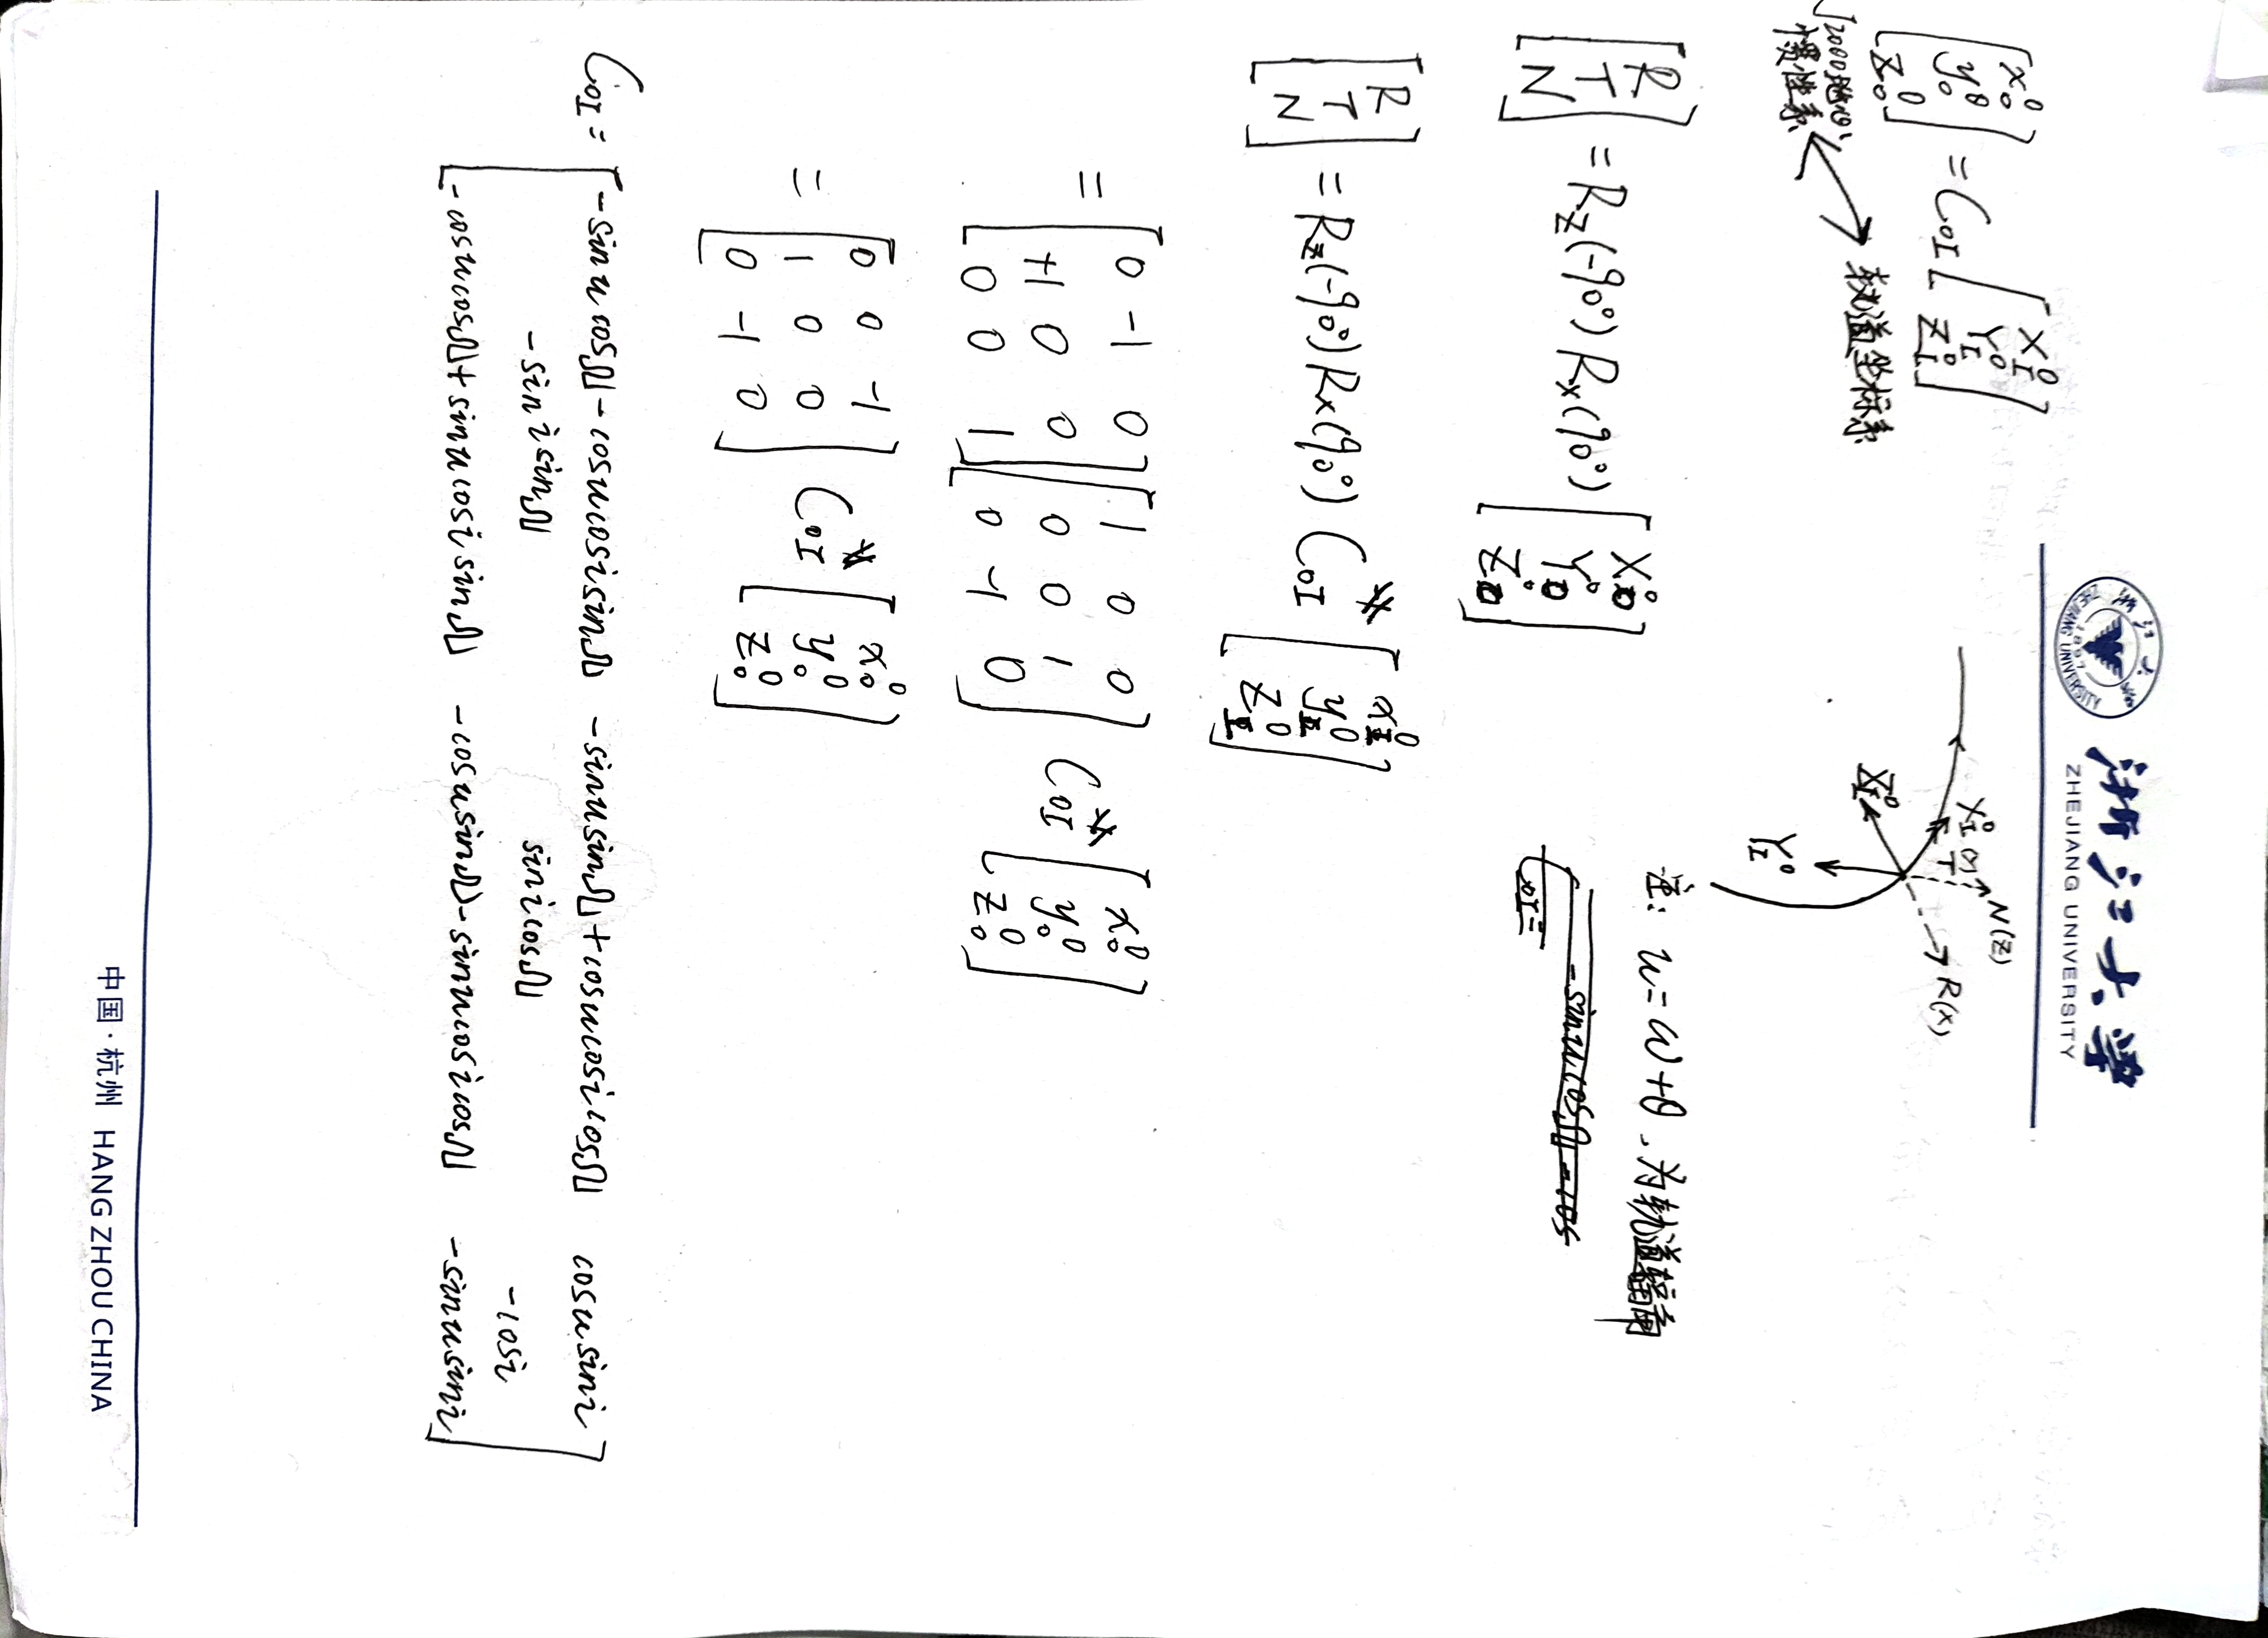 浙江大学
ZHEJIANG UNIVERSITY
[x₀⁰ y₀⁰ z₀⁰] = C_OI [X_I⁰ Y_I⁰ Z_I⁰]
J2000地心惯性系 ↔ 轨道坐标系
X_I⁰ (Y) T N(Z) R(X)
Z_I⁰
Y_I⁰
[R T N] = R_Z(-90°) R_X(90°) [X₀⁰ Y₀⁰ Z₀⁰]
注: u = ω + θ, 为轨道辐角
-sin u cos Ω - cos
C_OI =
[R T N] = R_Z(-90°) R_X(90°) C_OI [x_I⁰ y_I⁰ z_I⁰]
= [0 -1 0; +1 0 0; 0 0 1] [1 0 0; 0 0 1; 0 -1 0] C_OI [x₀⁰ y₀⁰ z₀⁰]
= [0 0 -1; 1 0 0; 0 -1 0] C_OI [x₀⁰ y₀⁰ z₀⁰]
C_OI = [-sin u cos Ω - cos u cos i sin Ω   -sin u sin Ω + cos u cos i cos Ω   cos u sin i
-sin i sin Ω   sin i cos Ω   -cos i
-cos u cos Ω + sin u cos i sin Ω   -cos u sin Ω - sin u cos i cos Ω   -sin u sin i]
中国·杭州 HANG ZHOU CHINA